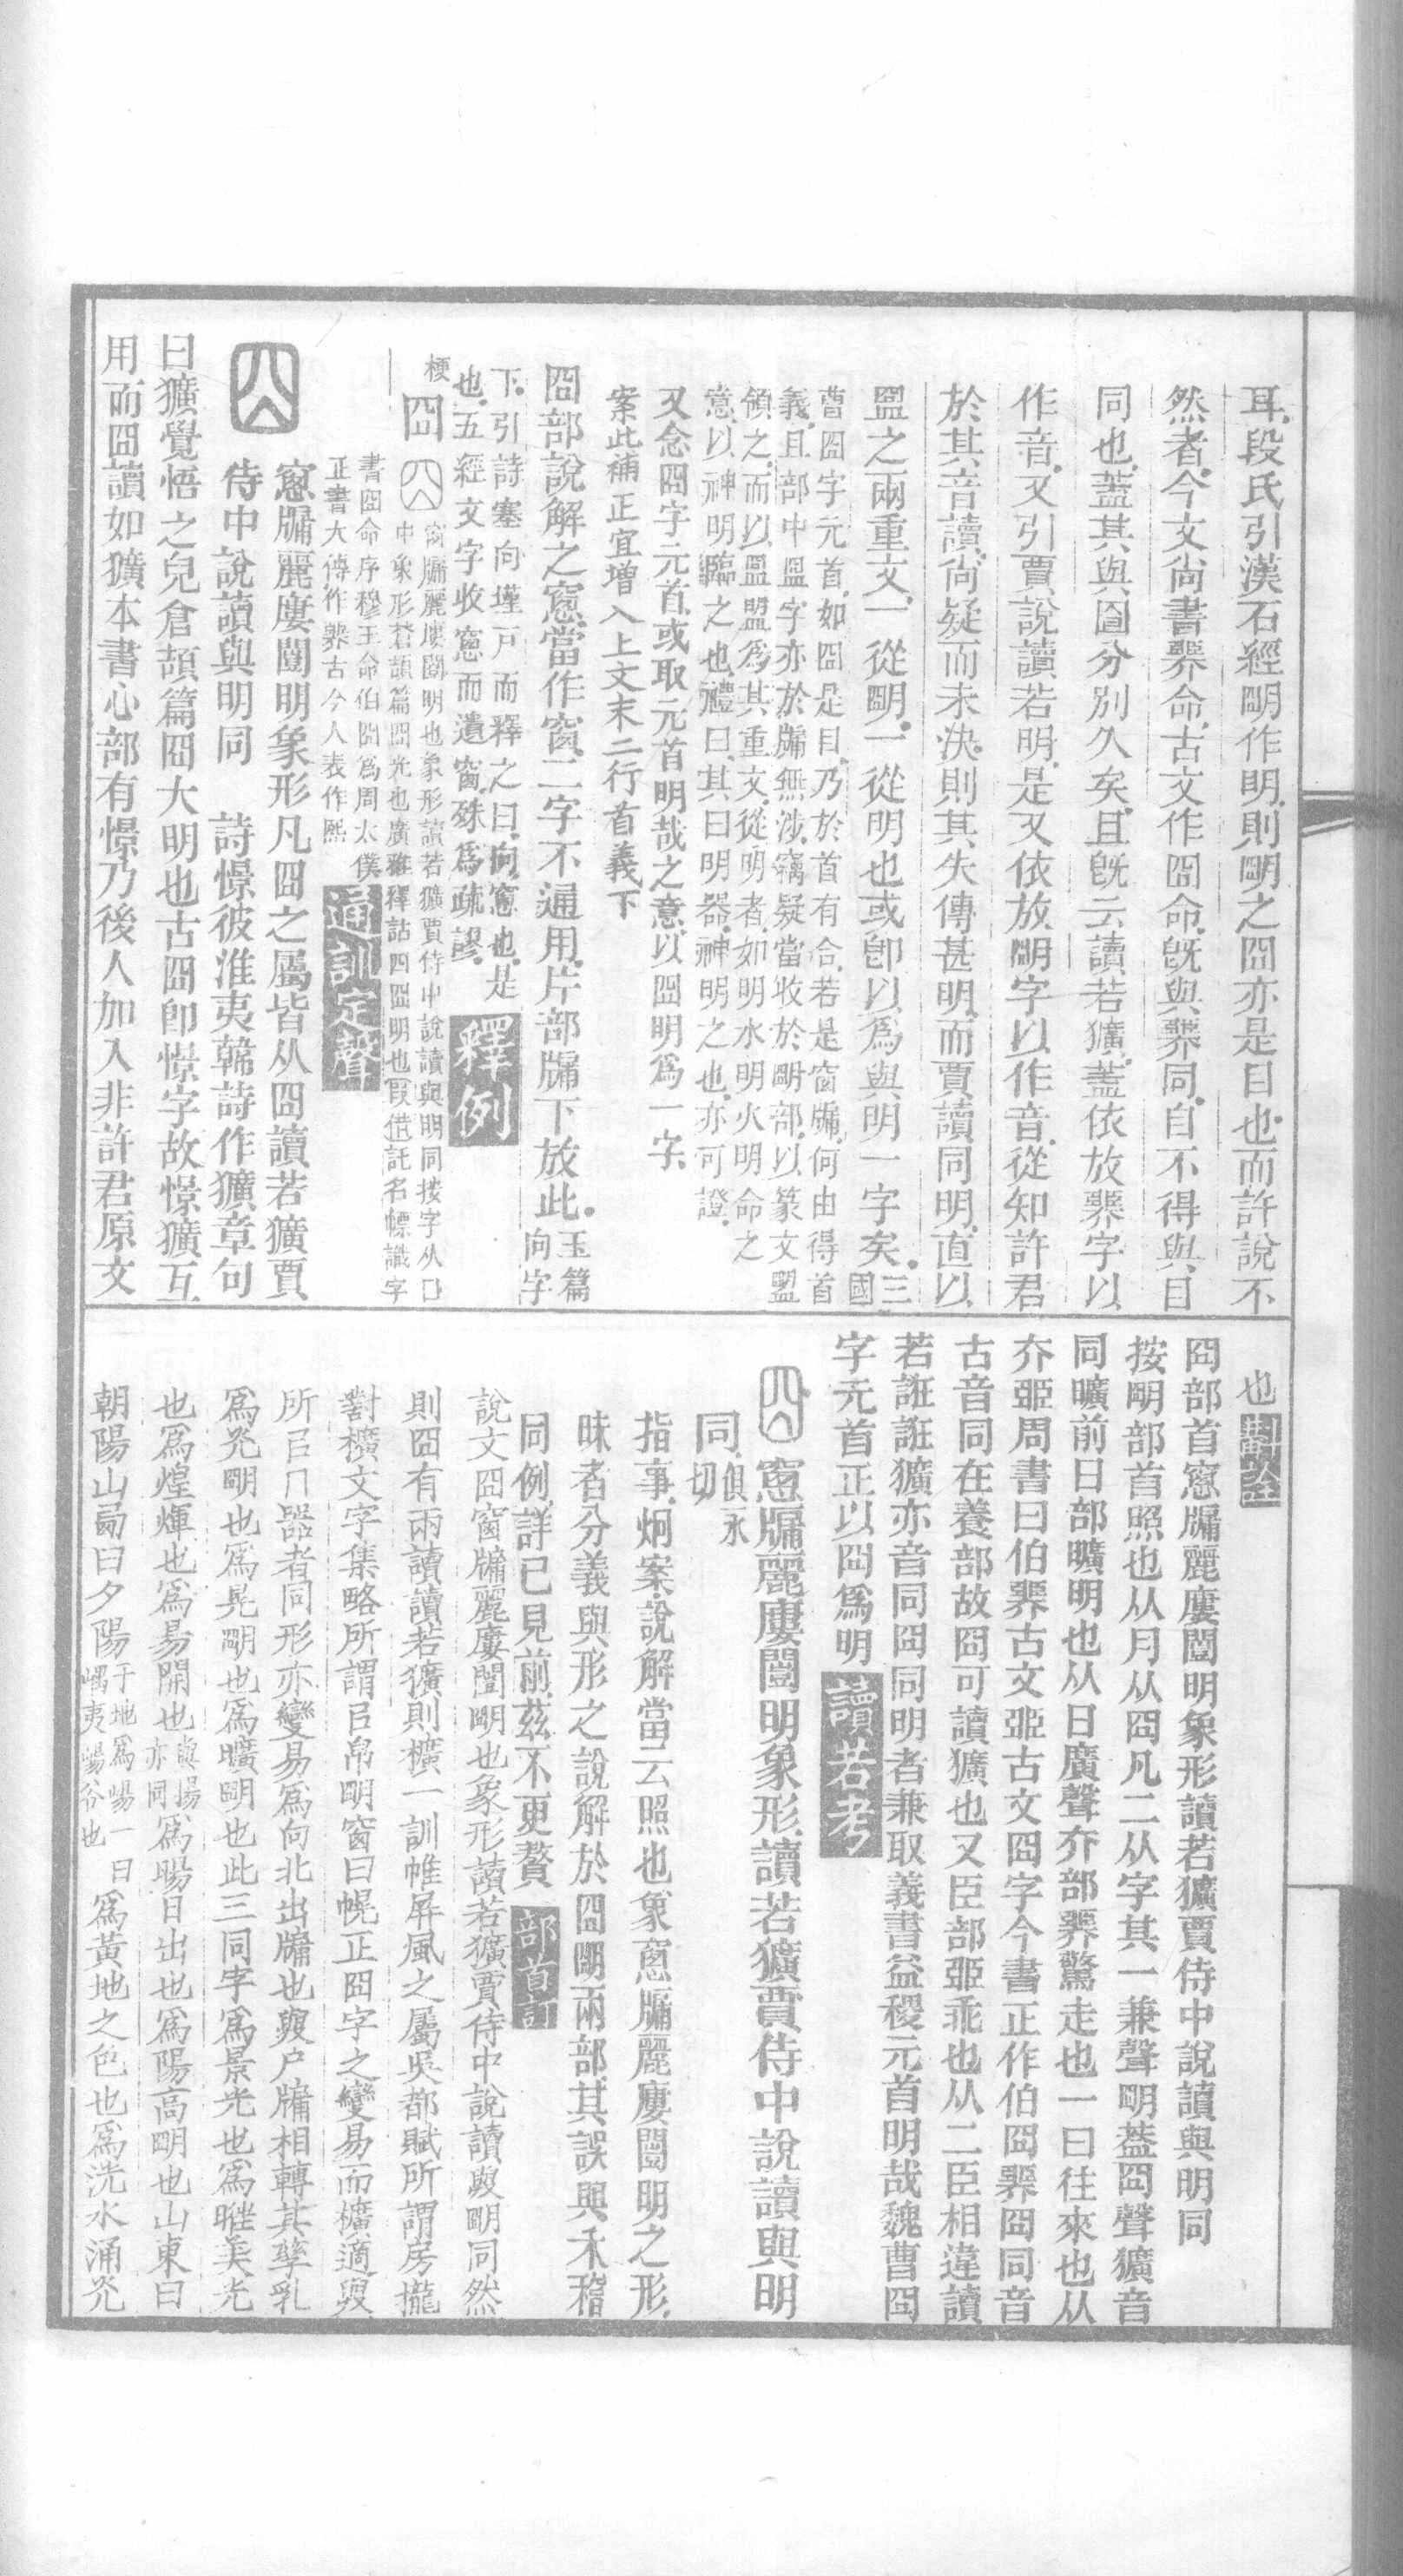 耳。段氏引漢石經朙作明。則朙之囧亦是目也。而許說不
然者。今文尙書臩命。古文作囧命。旣與臩同。自不得與目
同也。蓋其與囼分別久矣。且旣云讀若獷。蓋依放臩字以
作音。又引賈說讀若明。是又依放朙字以作音。從知許君
於其音讀。尙疑而未決。則其失傳甚明。而賈讀同明。直以
盟之兩重文。一從朙。一從明也。或卽以爲與明一字矣。三國
曹囧字元首。如囧是目。乃於首有合。若是窗牖。何由得首
義。且部中盟字亦於牖無涉。竊疑當收於朙部。以篆文盟
領之。而以盟盟爲其重文。從明者。如明水明火明命之
意。以神明臨之也。禮曰。其曰明器。神明之也。亦可證。
又念囧字元首。或取元首明哉之意。以囧明爲一字。
案此補正宜增入上文末二行首義下
囧部說解之窻。當作窗。二字不通用。片部牖下放此。玉篇向字
下。引詩塞向墐戶而釋之曰。向。窻也。是
也。五經文字收窻而遺窗。殊爲疏謬。
釋例
梗
囧
窗牖麗廔闓明也象形讀若獷賈侍中說讀與明同按字从囗
中象形蒼頡篇囧光也廣雅釋詁四囧明也叚借託名幖識字
書囧命序穆王命伯囧爲周太僕
正書大傳作臩古今人表作煕
通訓定聲
囧
窻牖麗廔闓明象形凡囧之屬皆从囧讀若獷賈
侍中說讀與明同　詩憬彼淮夷韓詩作獷章句
曰獷覺悟之皃倉頡篇囧大明也古囧卽憬字故憬獷互
用而囧讀如獷本書心部有憬乃後人加入非許君原文
也
斠詮
囧部首窻牖麗廔闓明象形讀若獷賈侍中說讀與明同
按朙部首照也从月从囧凡二从字其一兼聲朙葢囧聲獷音
同曠前日部曠明也从日廣聲夰部臩驚走也一曰往來也从
夰𦣞周書曰伯臩古文𦣞古文囧字今書正作伯囧臩囧同音
古音同在養部故囧可讀獷也又臣部𦣞乖也从二臣相違讀
若誑誑獷亦音同囧同明者兼取義書益稷元首明哉魏曹囧
字元首正以囧爲明
讀若考
囧
窻牖麗廔闓明象形。讀若獷。賈侍中說讀與明
同。俱永切
指事。炯案。說解當云照也象窻牖麗廔闓明之形。
昧者分義與形之說解於囧朙兩部。其誤與禾稽
同例。詳已見前。茲不更贅
部首訂
說文囧窗牖麗廔闓朙也象形讀若獷賈侍中說讀與朙同然
則囧有兩讀讀若獷則櫎一訓帷屏風之屬吳都賦所謂房櫳
對櫎文字集略所謂㠯帛明窗曰幌正囧字之變易而櫎適與
所㠯冂器者同形亦變易爲向北出牖也與戶牖相轉其孳乳
爲炗朙也爲晃朙也爲曠朙也此三同字爲景光也爲暀美光
也爲煌煇也爲昜開也與揚亦同爲暘日出也爲陽高朙也山東曰
朝陽山西曰夕陽于地爲崵一曰嵎夷崵谷也爲黃地之色也爲洸水涌炗